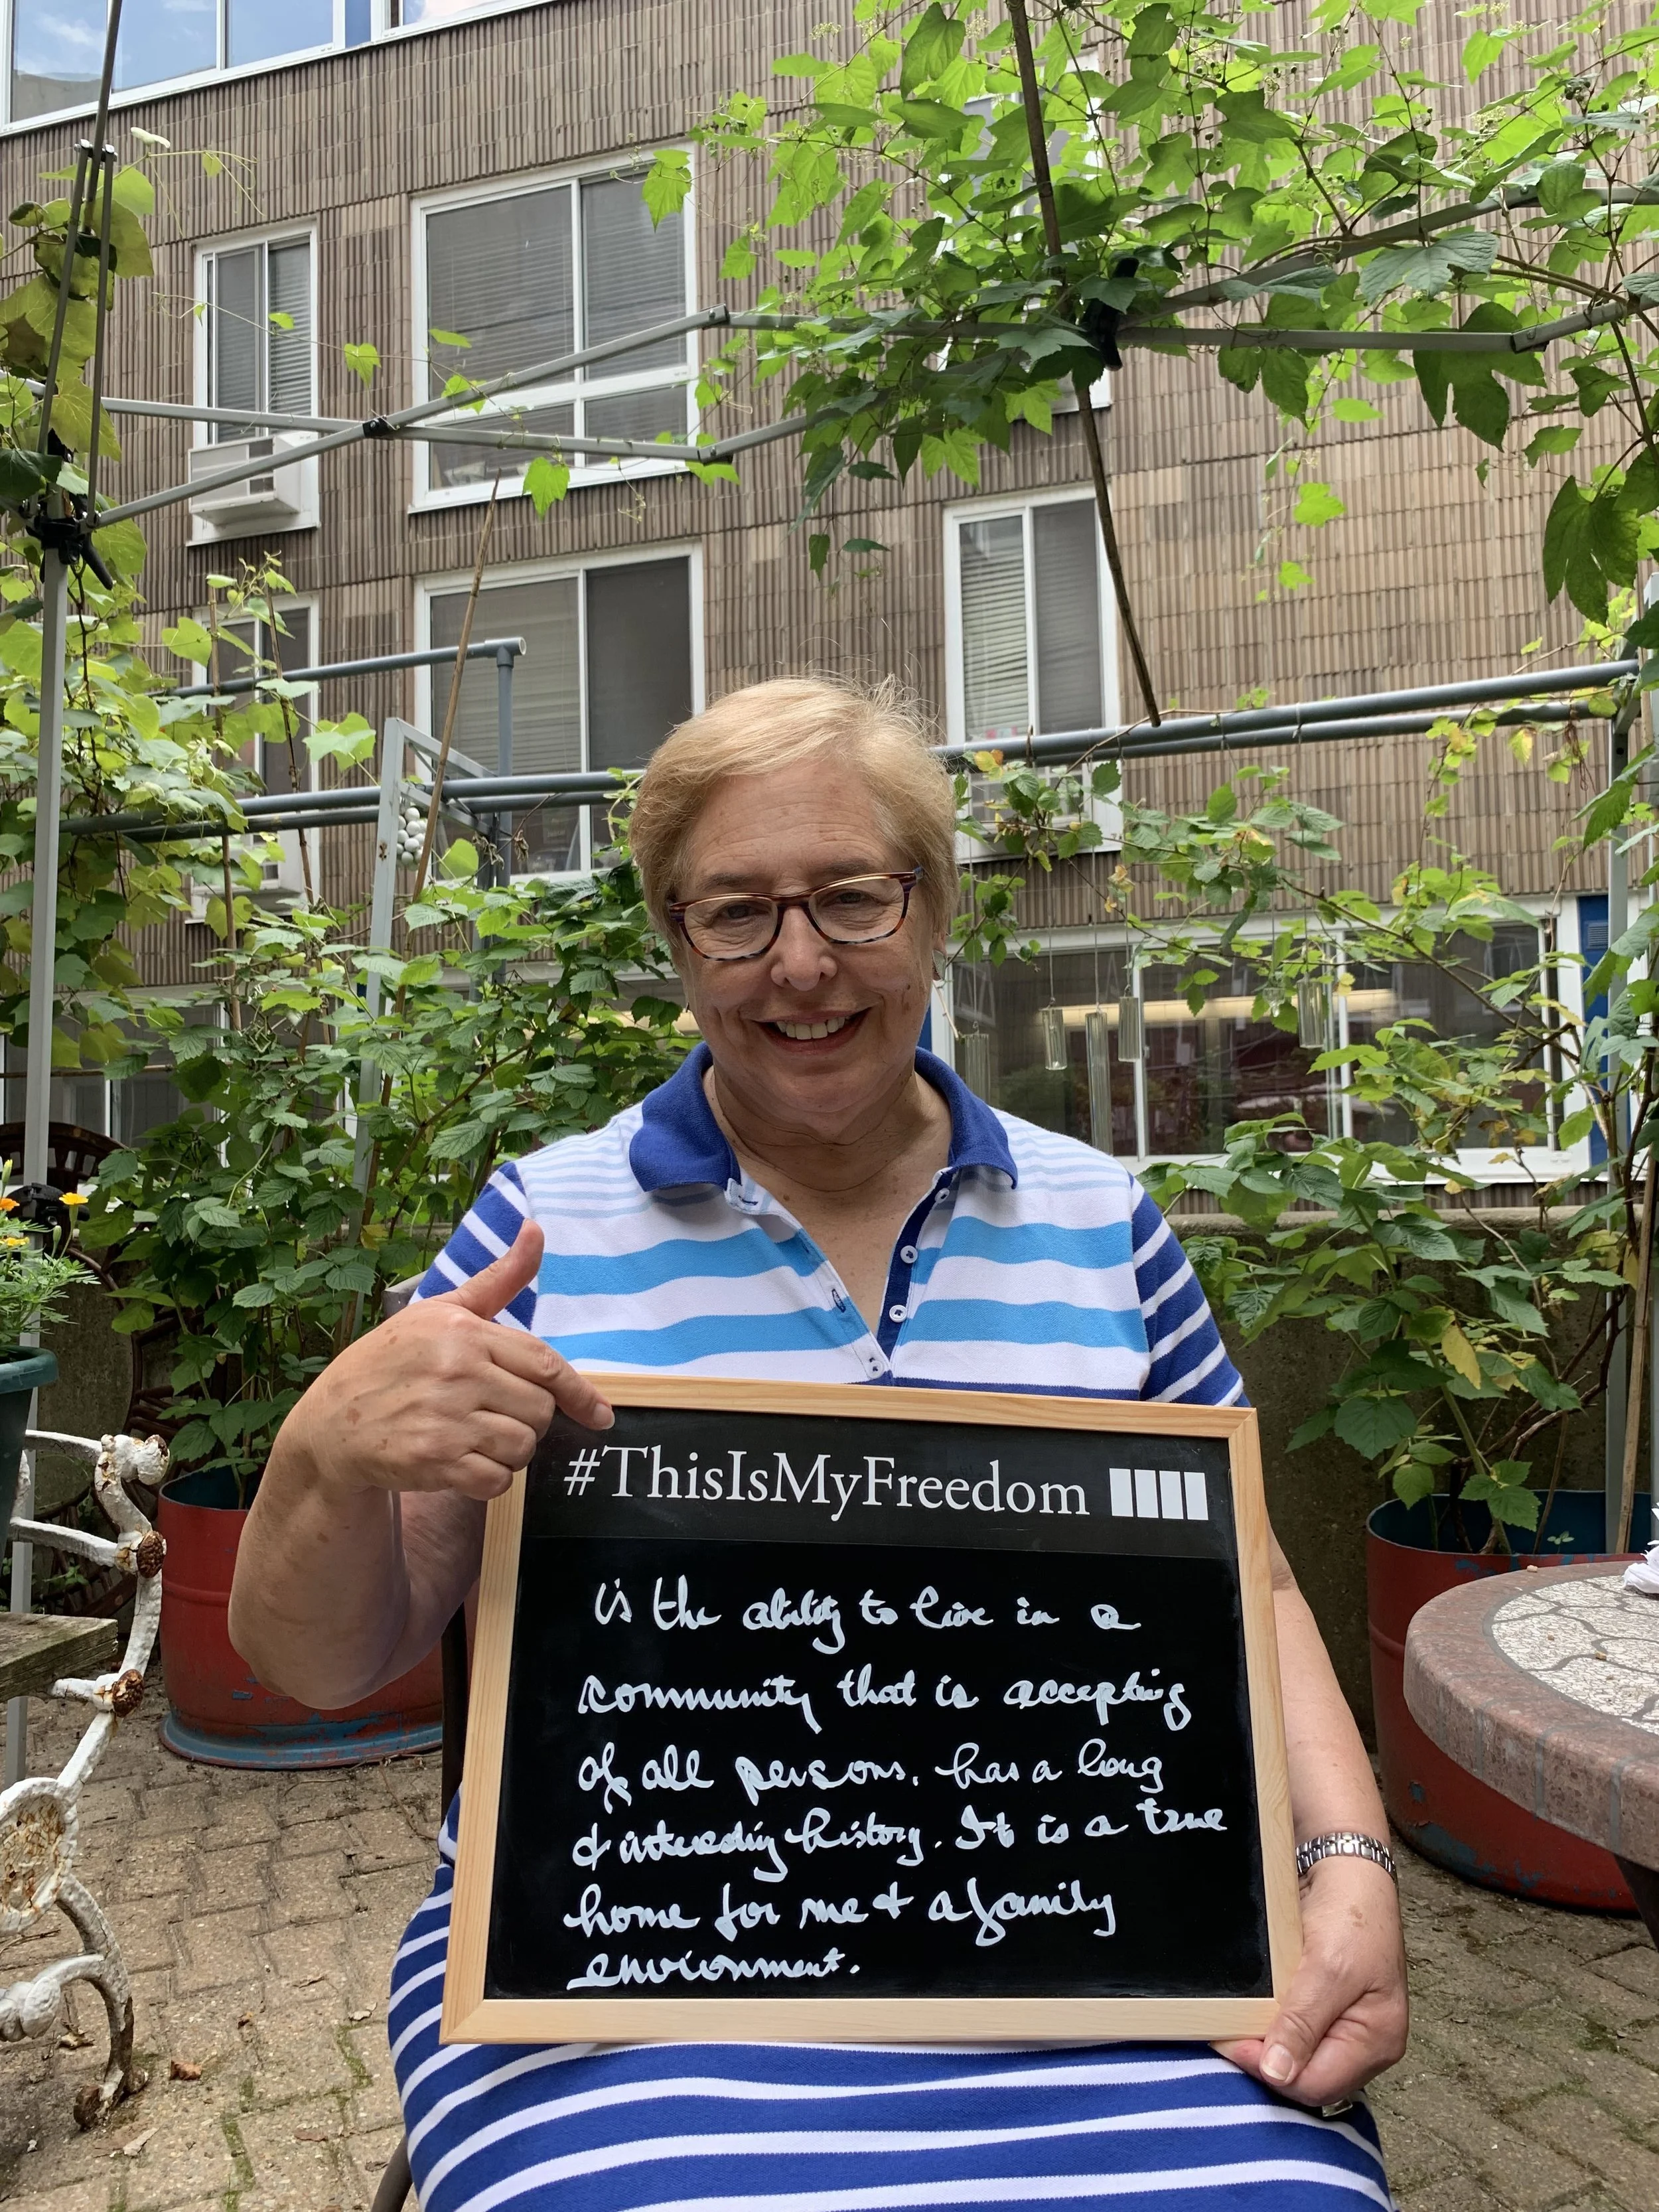 #ThisIsMyFreedom
is the ability to live in a
community that is accepting
of all persons, has a long
& interesting history. It is a true
home for me & a family
environment.